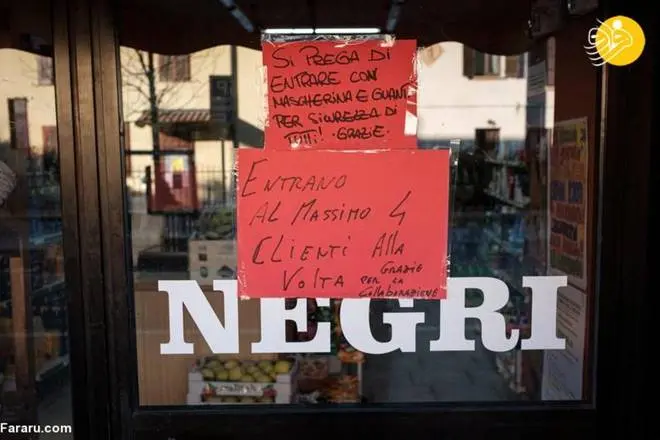 SI PREGA DI
ENTRARE CON
MASCHERINA E GUANTI
PER SICUREZZA DI
TUTTI! GRAZIE.
ENTRANO
AL MASSIMO 4
CLIENTI ALLA
VOLTA GRAZIE
PER LA
COLLABORAZIONE
NEGRI
Fararu.com